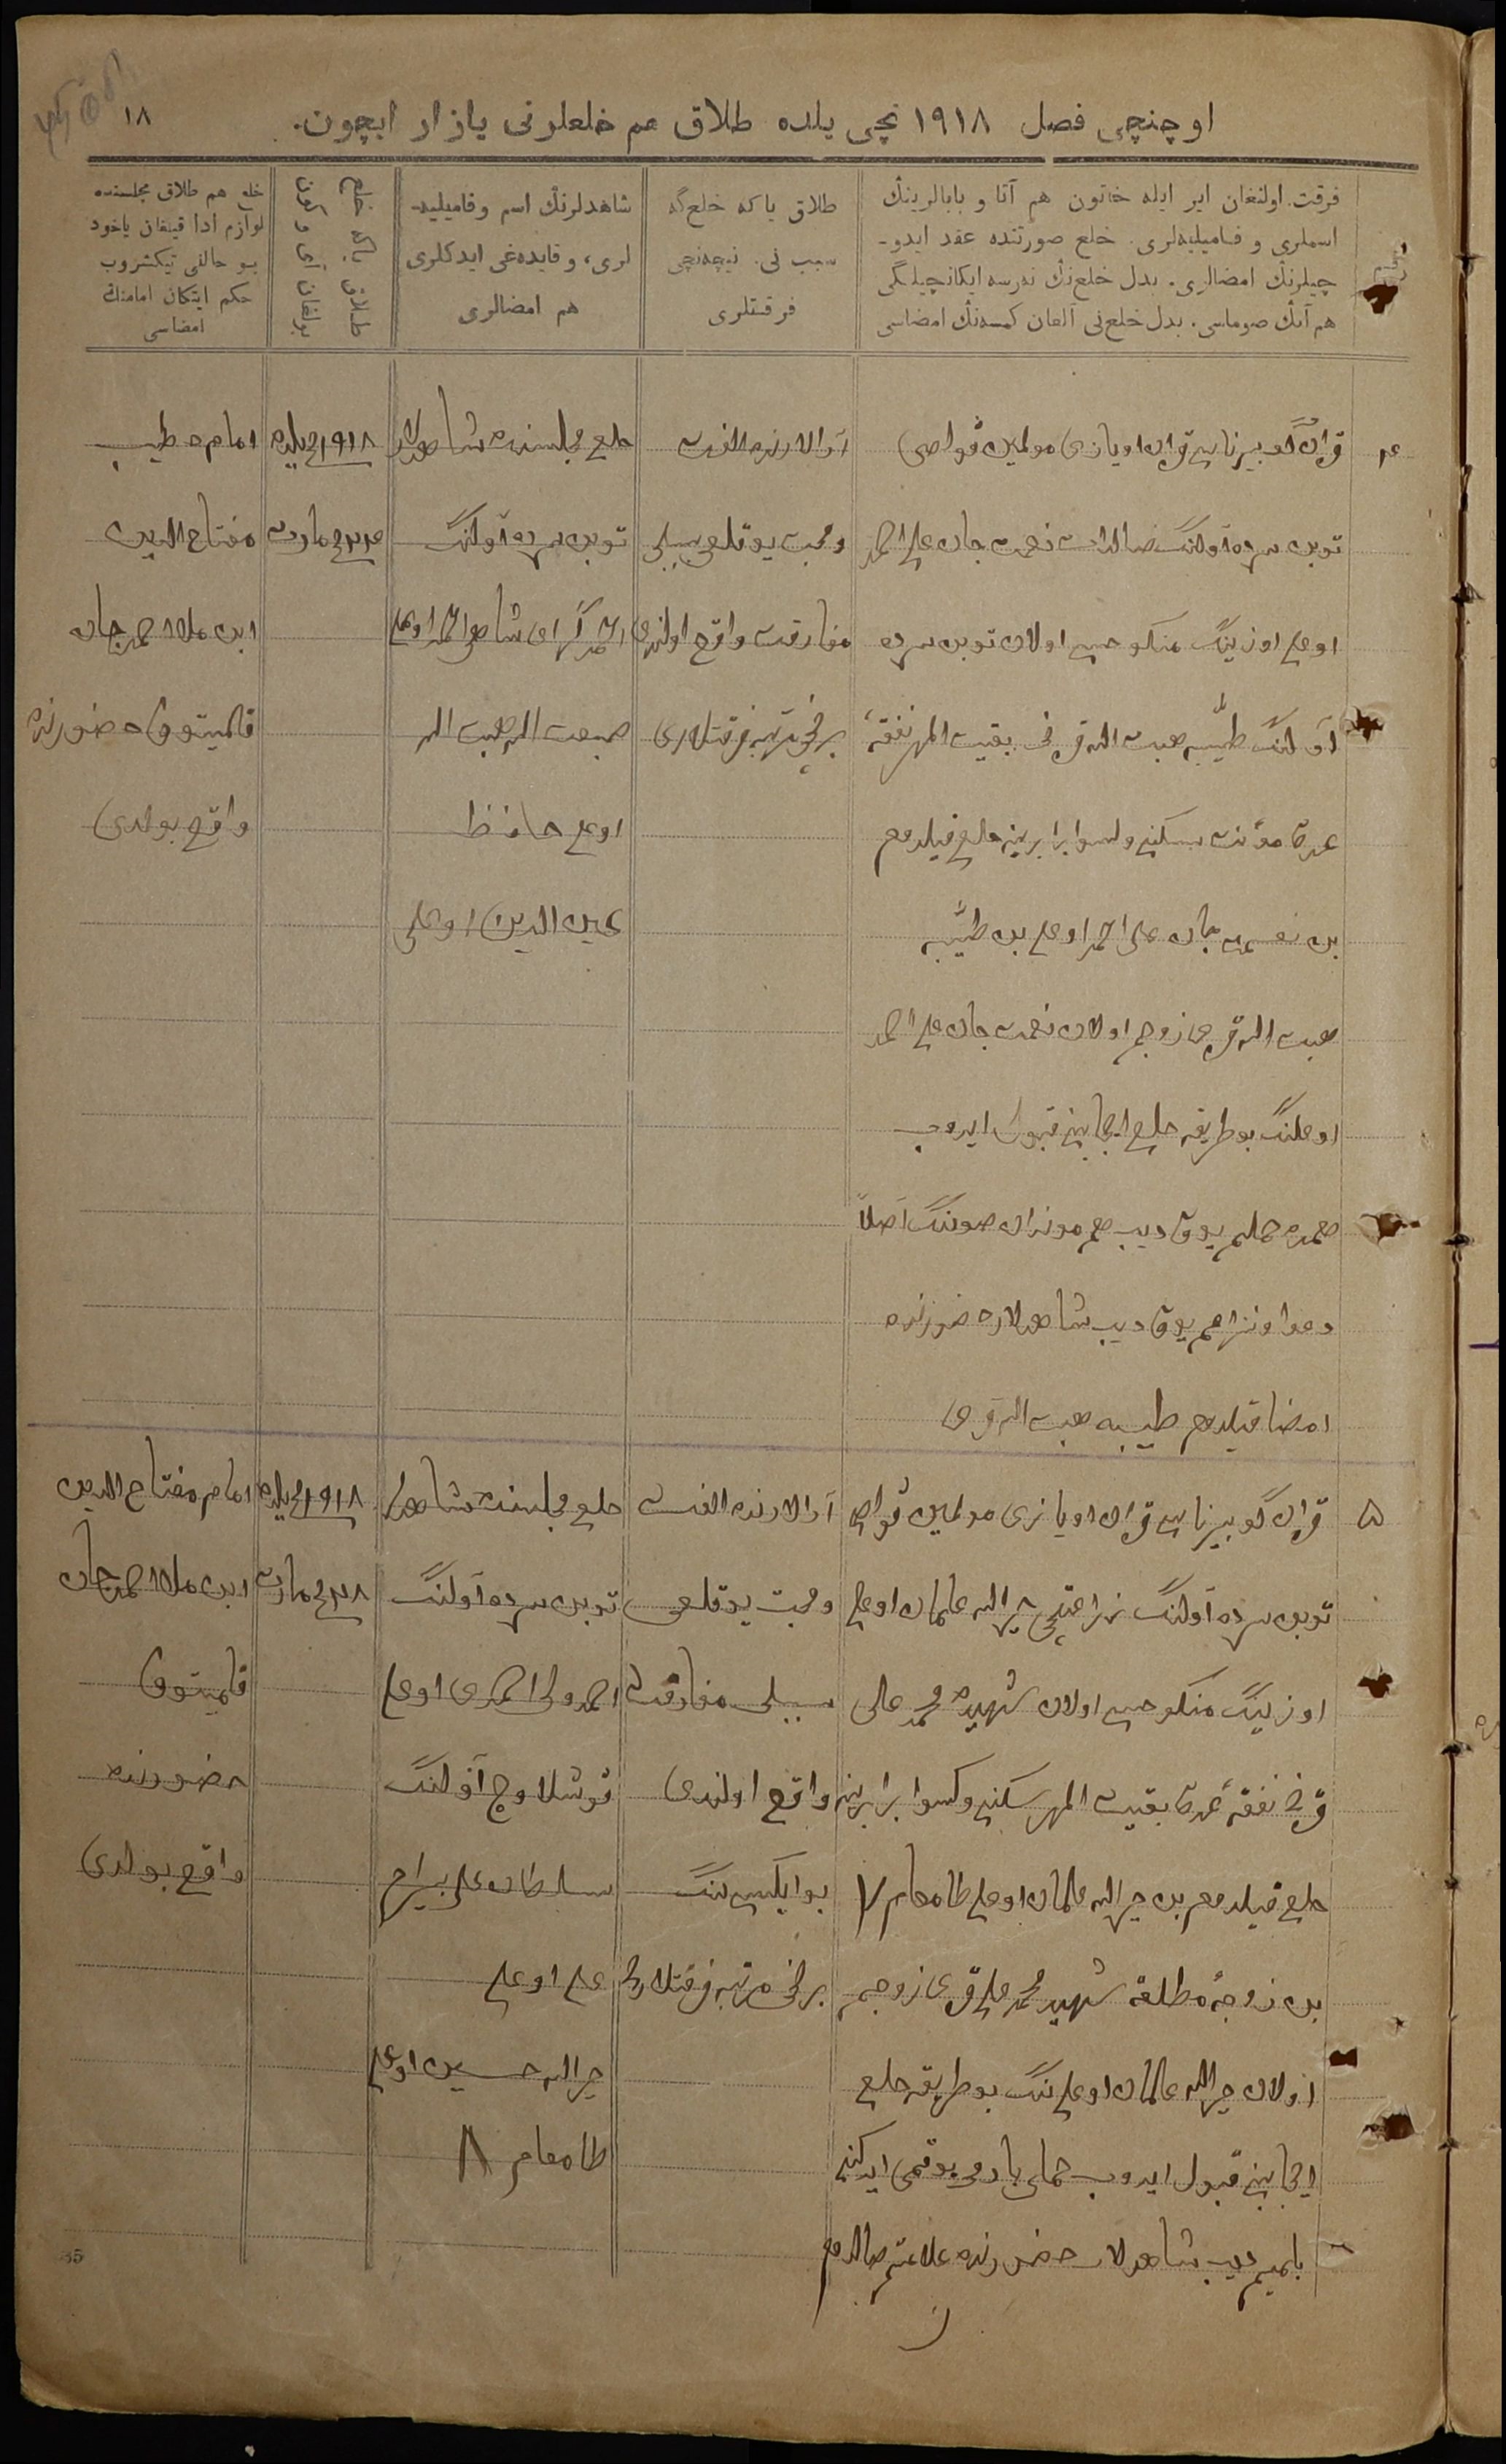 اوچنچی فصل ۱۹۱۸ نچی یلده طلاق هم خلعلرنی یازار ایچون.
۱۸
فرقت اولنغان ایر ایله خاتون هم آتا و بابالرینڭ
اسملری و فامیلیه‌لری. خلع صورتنده عقد ایدو-
چیلرنڭ امضالری. بدل خلع‌نڭ نه‌رسه ایکانچیلگی
هم آنڭ صوماسی. بدل خلع‌نی آلغان کمسه‌نڭ امضاسی
طلاق یا که خلع‌گه
سبب نی. نیچه‌نچی
فرقتلری
شاهدلرنڭ اسم و فامیلیه-
لری، و قایده‌غی ایدکلری
هم امضالری
طلاق یا که خلع
بولغان آی و کون
خلع هم طلاق مجلسنده
لوازم ادا قیلغان یاخود
بو حالنی تیکشروب
حکم ایتکان امامنڭ
امضاسی
۴
قزان گوبیرناسی قزان اویازی مولمین ڤولصی
توبن سرده آولنڭ صالدات نعمت جان علی احمد
اوغلی اوزینڭ منکوحسی اولان توبن سرده
آولنڭ طیّبه هبت الله قزی نی بقیت المهر نفقهٔ
عدت مؤنت سکنی ولسوا برابرینه خلع قیلدم
بن نعمت جان علی احمد اوغلی بن طیّبه
هبت الله قزی زوجم اولان نعمت جان علی احمد
اوغلنڭ بو طریقه خلع ایجابنی قبول ایدوب
هم حملم یوق دیب هم موندان صونڭ اصلا
دعوا و نزاعم یوق دیب شاهدلار حضورنده
امضا قیلدم طیبه هبت الله قزی
آرالارنده الفت
و محبت یوقلغی سببلی
مفارقت واقع اولندی
برنچی مرتبه فرقتلاری
خلع مجلسنده شاهدلار
توبن سرده آولنڭ
احمد گرای شاه احمد اوغلی
صبغت الله هبت الله
اوغلی حافظ
عین الدین اوغلی
۱۹۱۸ نچی یلده
۲۴ نچی مارت
امام طیب
مفتاح الدین
ابن ملا احمدجان
قلمیتوف حضورنده
واقع بولدی
۵
قزان گوبیرناسی قزان اویازی مولمین ڤولصی
توبن سرده آولنڭ زراعتچی خیرالله علمان اوغلی
اوزینڭ منکوحسی اولان شهیده محمد علی
قزی نی نفقهٔ عدت بقیت المهر سکنی وکسوا برابرینه
خلع قیلدم بن خیرالله علمان اوغلی طامغام ۷
بن زوجهٔ مطلقه شهیده محمد علی قزی زوجم
اولان خیرالله علمان اوغلی ننڭ بو طریقه خلع
ایجابنی قبول ایدوب حملی بارمی یوقمی ایدکنی
بلمیم دیب شاهدلار حضورنده علامتم صالدم
آرالارنده الفت
و محبت یوقلغی
سببلی مفارقت
واقع اولندی
بو ایکسی ننڭ
برنچی مرتبه فرقتلاری
خلع مجلسنده شاهدلار
توبن سرده آولنڭ
احمد ولی احمدی اوغلی
قوشلاوچ آولنڭ
سلطان علی بیرام
علی اوغلی
خیرالله حسین اوغلی
طامغام ۸
۱۹۱۸ نچی یلده
۲۸ نچی مارت
امام مفتاح الدین
ابن ملا احمدجان
قلمیتوف
حضورنده
واقع بولدی